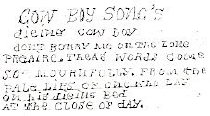 COW BOY SONG'S
dieing COW boy
dont BURRY ME ON THE LONG
PRCAIRC, THEAS WORDS COME
SO MOURNFULLY. FROM the
PALE LIPS OF ONE WHO LAY
ON his dieing bed
AT THE CLOSE OF DAY.